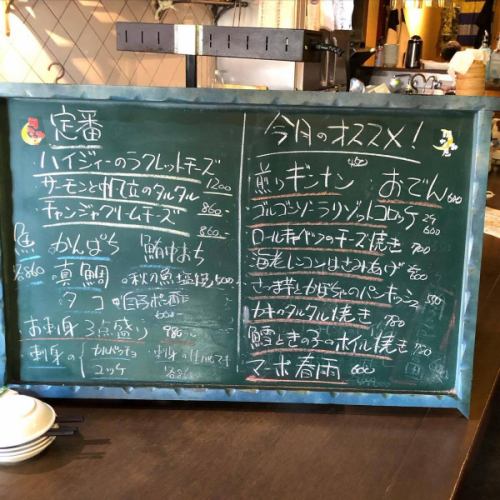 定番
ハイジィーのラクレットチーズ
サーモンと帆立のタルタル 1200
チャンジャクリームチーズ 860-
魚 かんぱち 鮪中おち
各860 真鯛 秋の魚塩焼
タコ
お刺身3点盛り 980-
刺身の カルパッチョ
ユッケ 各860
今月のオススメ!
煎りギンナン おでん 600
ゴルゴンゾーラリゾットコロッケ 2ケ 600
ロールキャベツのチーズ焼き 700
海老レンコンはさみあげ
さつま芋とかぼちゃのパンキッシュ
カキのタルタル焼き 780
鱈ときの子のホイル焼き 780
マーボ春雨 600